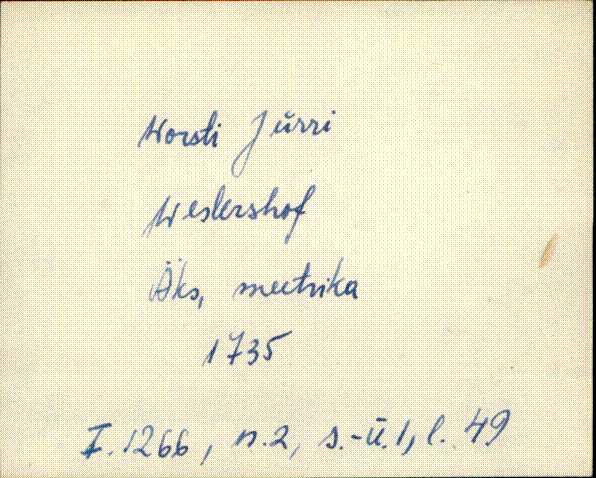 Worsti Jürri
Weslershof
Äks, meetrika
1735
F. 1266, n. 2, s.-ü. 1, l. 49